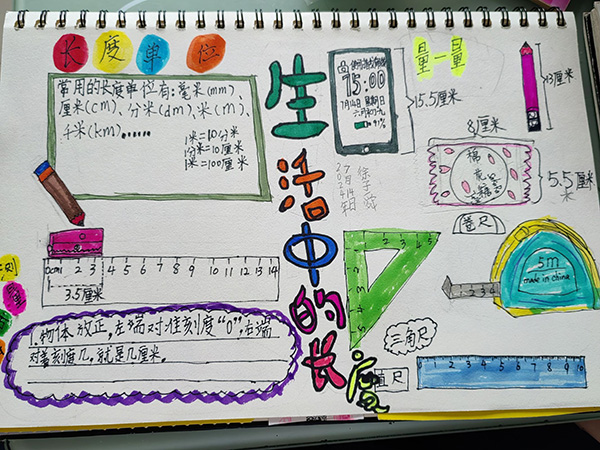 长度单位
常用的长度单位有:毫米(mm)、
厘米(cm)、分米(dm)、米(m)、
千米(km)……
1米=10分米
1分米=10厘米
1米=100厘米
0cm 1 2 3 4 5 6 7 8 9 10 11 12 13 14
3.5厘米
1.物体放正,左端对准刻度“0”,右端
对着刻度几,就是几厘米。
生活中的长度
15:00
7月14日 星期日
91%
15.5厘米
量一量
13厘米
8厘米
棉
花
糖
5.5厘
米
卷尺
5m
made in china
1 2 3
2 3 4 5
三角尺
直尺
0 1 2 3 4 5 6 7 8 9 10